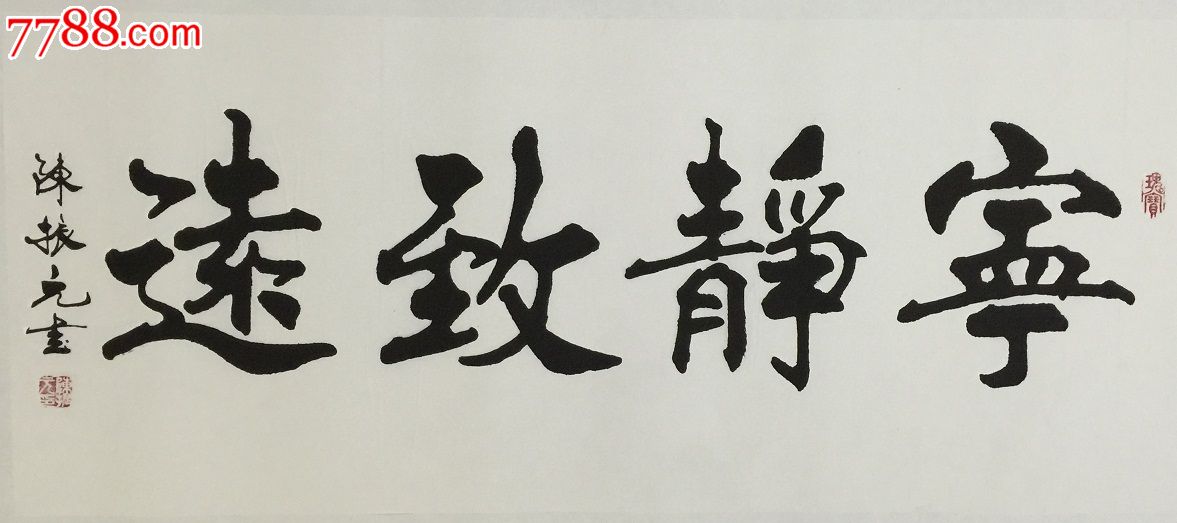 7788.com
寧靜致遠
陳振元書
瑰寶